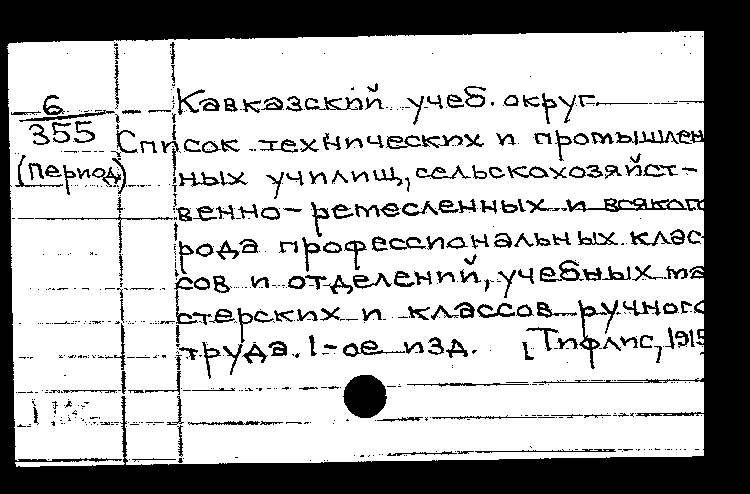 6
355
(период)
Кавказский учеб. округ.
Список технических и промышлен
ных училищ, сельскохозяйст-
венно-ремесленных и всякого
рода профессиональных клас
сов и отделений, учебных ма
стерских и классов ручного
труда. 1-ое изд. [Тифлис, 1915